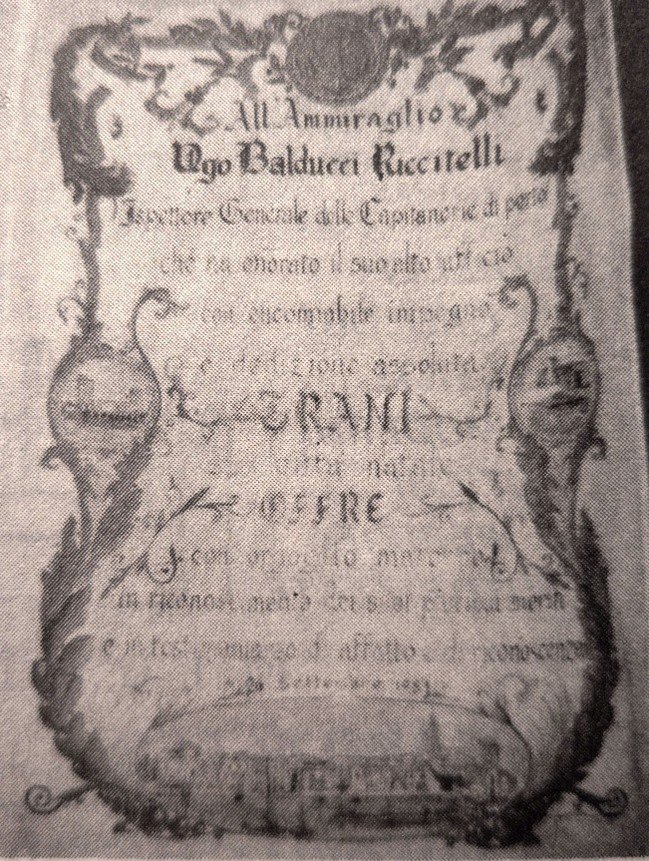 All'Ammiraglio
Ugo Balducci Riccitelli
Ispettore Generale delle Capitanerie di porto
che ha onorato il suo alto ufficio
con encomiabile impegno
e dedizione assoluta
TRANI
sua città natale
OFFRE
con orgoglio
in riconoscimento dei suoi meriti
e in testimonianza di affetto e di riconoscenza
Settembre